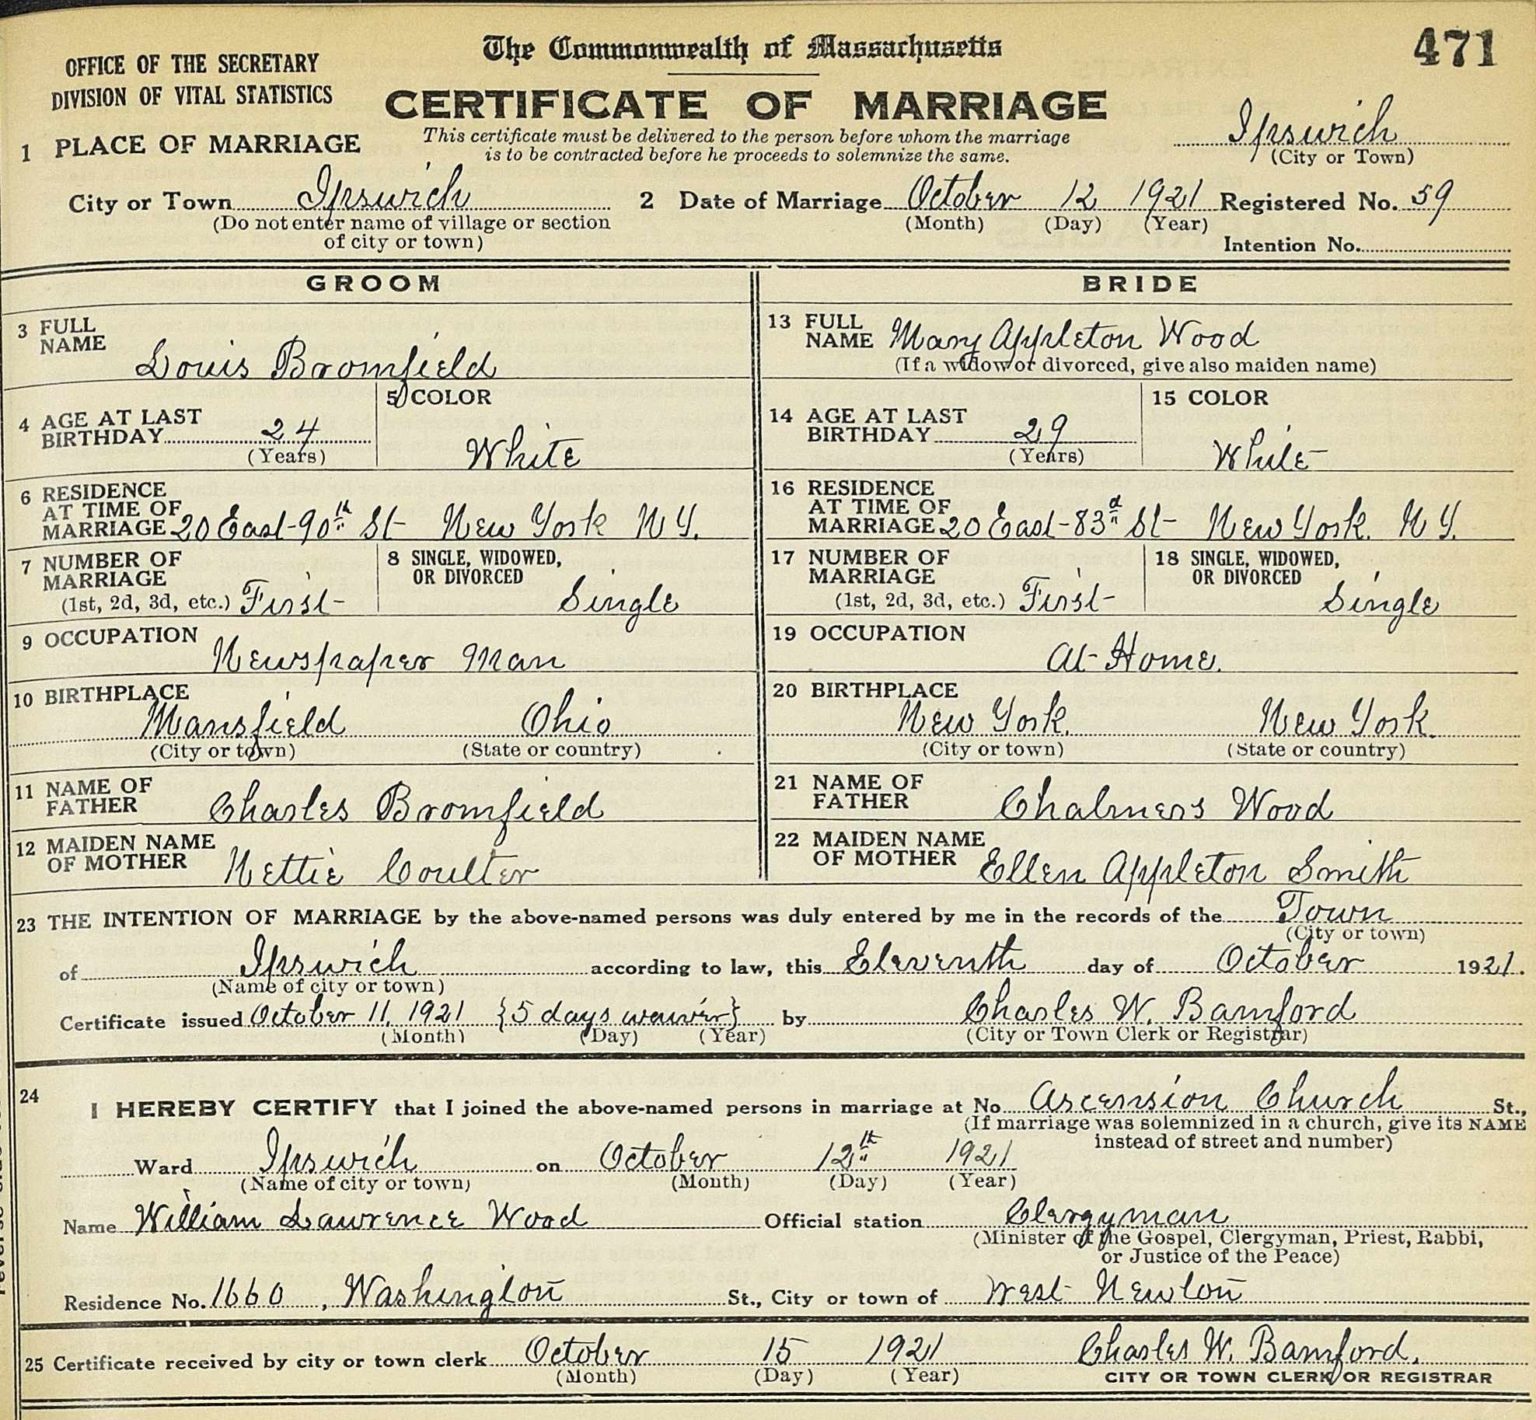 The Commonwealth of Massachusetts
471
OFFICE OF THE SECRETARY
DIVISION OF VITAL STATISTICS
CERTIFICATE OF MARRIAGE
This certificate must be delivered to the person before whom the marriage
is to be contracted before he proceeds to solemnize the same.
Ipswich
(City or Town)
1 PLACE OF MARRIAGE
City or Town Ipswich 2 Date of Marriage October 12 1921 Registered No. 59
(Do not enter name of village or section (Month) (Day) (Year)
of city or town) Intention No.
GROOM BRIDE
3 FULL NAME Louis Bromfield
13 FULL NAME Mary Appleton Wood
(If a widow or divorced, give also maiden name)
4 AGE AT LAST BIRTHDAY 24 (Years)
5 COLOR White
14 AGE AT LAST BIRTHDAY 29 (Years)
15 COLOR White
6 RESIDENCE AT TIME OF MARRIAGE 20 East-90th St New York N Y.
16 RESIDENCE AT TIME OF MARRIAGE 20 East-83d St New York. N Y.
7 NUMBER OF MARRIAGE (1st, 2d, 3d, etc.) First
8 SINGLE, WIDOWED, OR DIVORCED Single
17 NUMBER OF MARRIAGE (1st, 2d, 3d, etc.) First
18 SINGLE, WIDOWED, OR DIVORCED Single
9 OCCUPATION Newspaper Man
19 OCCUPATION At-Home.
10 BIRTHPLACE Mansfield Ohio
(City or town) (State or country)
20 BIRTHPLACE New York. New York.
(City or town) (State or country)
11 NAME OF FATHER Charles Bromfield
21 NAME OF FATHER Chalmers Wood
12 MAIDEN NAME OF MOTHER Nettie Coulter
22 MAIDEN NAME OF MOTHER Ellen Appleton Smith
23 THE INTENTION OF MARRIAGE by the above-named persons was duly entered by me in the records of the Town
(City or town)
of Ipswich according to law, this Eleventh day of October 1921.
(Name of city or town)
Certificate issued October 11, 1921 {5 days waiver} by Charles W. Bamford
(Month) (Day) (Year) (City or Town Clerk or Registrar)
24 I HEREBY CERTIFY that I joined the above-named persons in marriage at No. Ascension Church St.,
(If marriage was solemnized in a church, give its NAME
instead of street and number)
Ward Ipswich on October 12th 1921
(Name of city or town) (Month) (Day) (Year)
Name William Lawrence Wood Official station Clergyman
(Minister of the Gospel, Clergyman, Priest, Rabbi,
or Justice of the Peace)
Residence No. 1660, Washington St., City or town of West Newton
25 Certificate received by city or town clerk October 15 1921 Charles W. Bamford.
(Month) (Day) (Year) CITY OR TOWN CLERK OR REGISTRAR